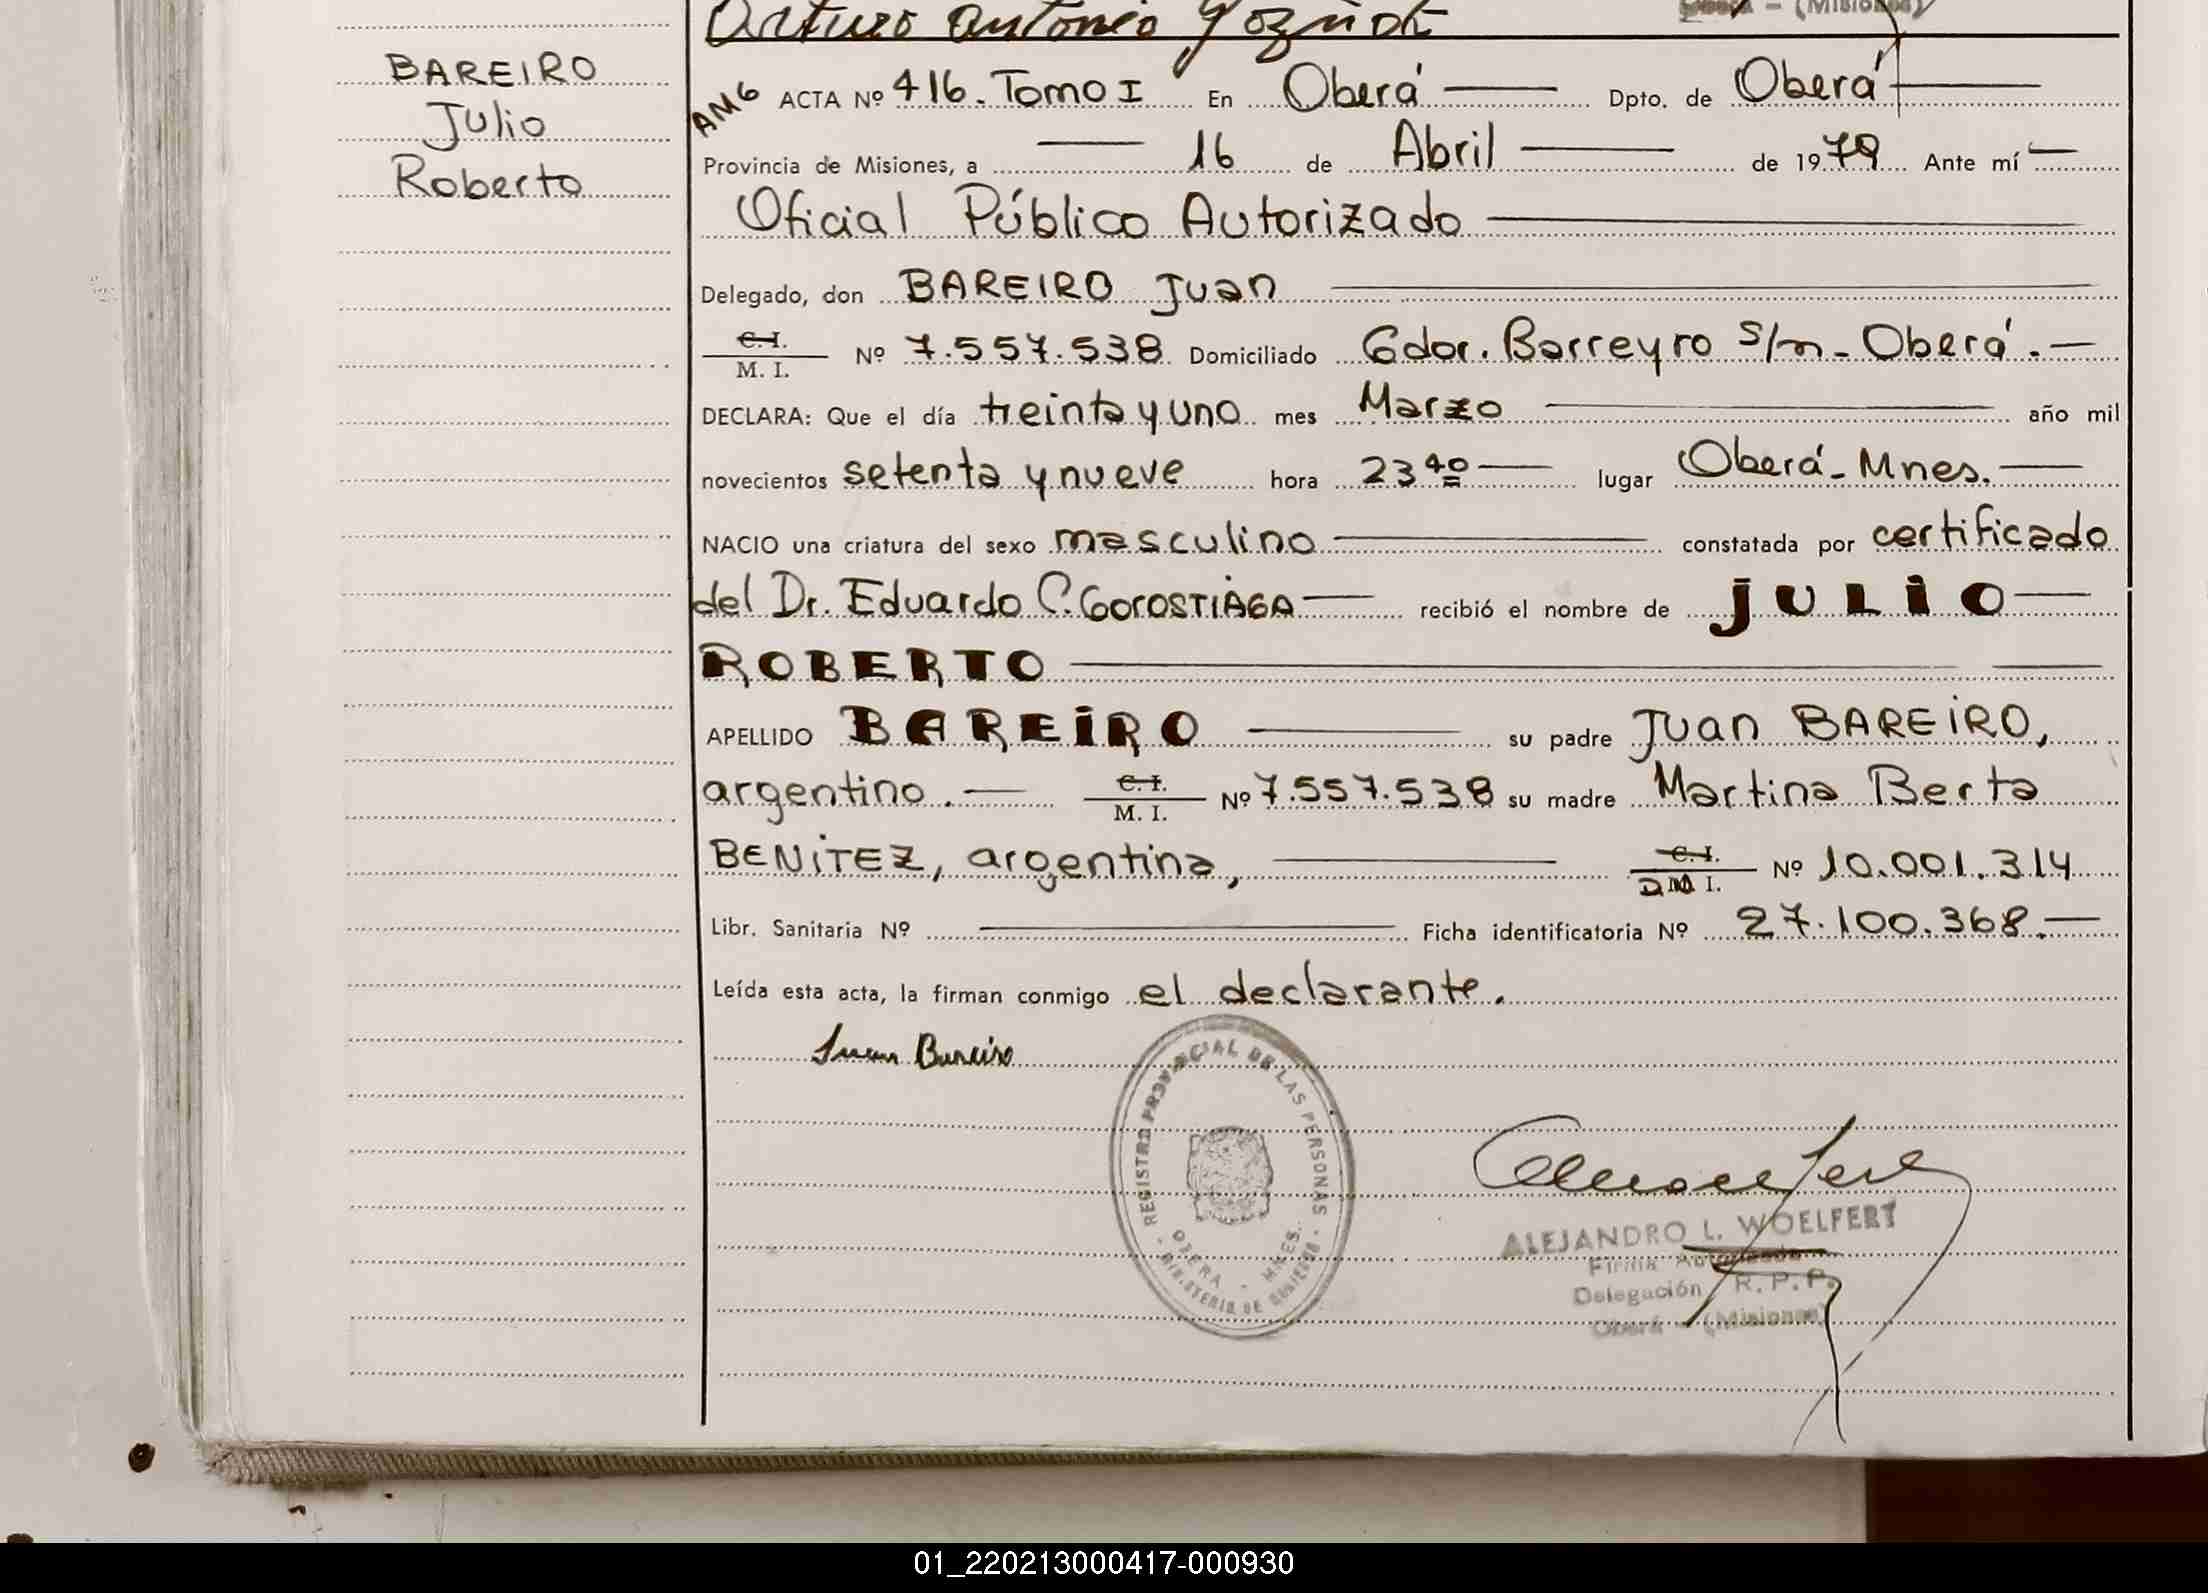 Arturo Antonio
(Misiones)
BAREIRO
Julio
Roberto
AMG ACTA Nº 416. Tomo I En Oberá Dpto. de Oberá
Provincia de Misiones, a 16 de Abril de 1979 Ante mí
Oficial Público Autorizado
Delegado, don BAREIRO Juan
C.I. / M. I. Nº 7.557.538 Domiciliado Gdor. Barreyro s/n - Oberá.
DECLARA: Que el día treinta y uno mes Marzo año mil
novecientos setenta y nueve hora 23 40 lugar Oberá - Mnes.
NACIO una criatura del sexo masculino constatada por certificado
del Dr. Eduardo C. GOROSTIAGA recibió el nombre de JULIO
ROBERTO
APELLIDO BAREIRO su padre Juan BAREIRO,
argentino. C.I. / M. I. Nº 7.557.538 su madre Martina Berta
BENITEZ, argentina, C.I. / D.N.I. Nº 10.001.314
Libr. Sanitaria Nº Ficha identificatoria Nº 27.100.368.
Leída esta acta, la firman conmigo el declarante.
Juan Bareiro
REGISTRO PROVINCIAL DE LAS PERSONAS
OBERA - MNES.
MINISTERIO DE GOBIERNO
ALEJANDRO L. WOELFERT
Firma Autorizada
Delegación R. P. P.
Oberá - (Misiones)
01_220213000417-000930